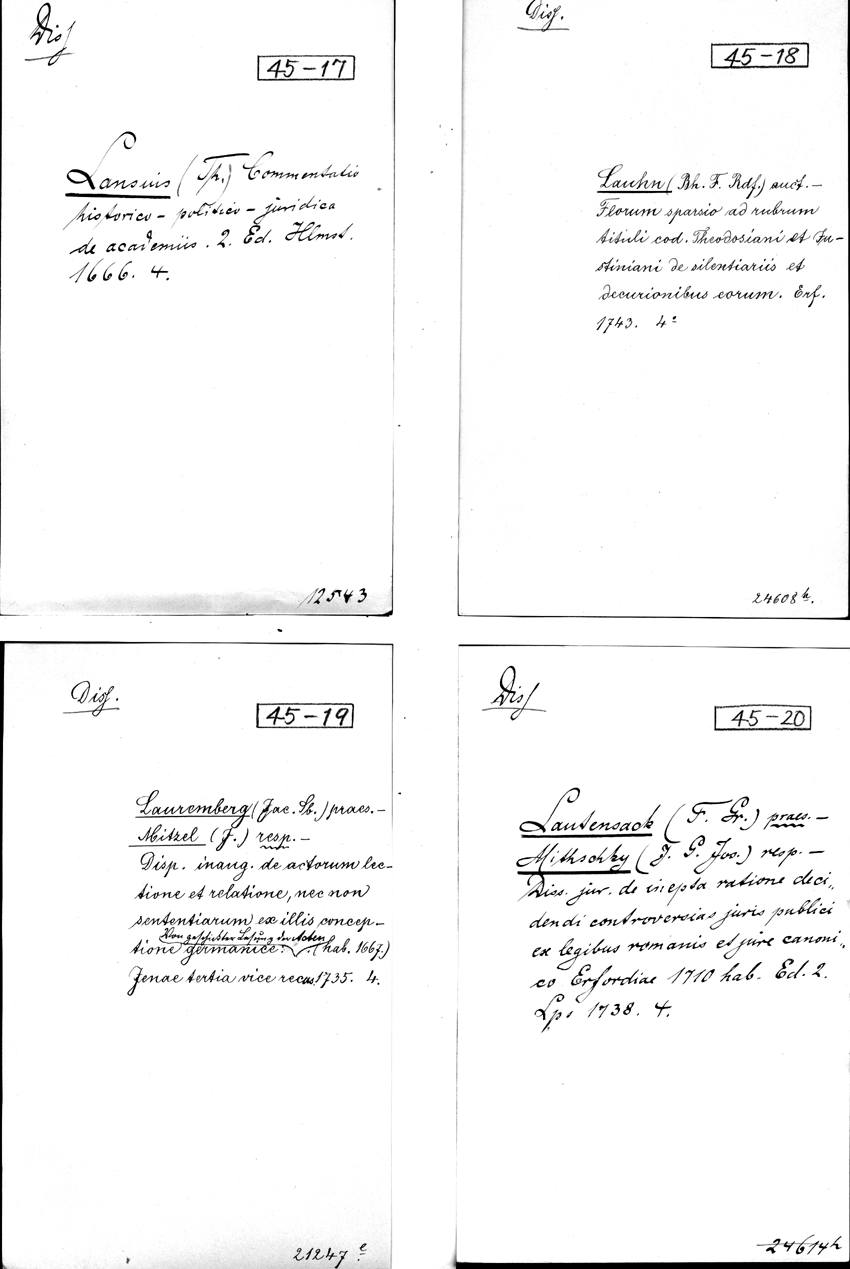 Diss
45-17
Lansius (Th.) Commentatio
historico-politico-juridica
de academiis. 2. Ed. Hlmst.
1666. 4.
12543
Diss.
45-18
Lauhn (Bh. F. Rdf.) auct.-
Florum sparsio ad rubrum
tituli cod. Theodosiani et Ju-
stiniani de silentiariis et
decurionibus eorum. Erf.
1743. 4°
24608h.
Diss.
45-19
Lauremberg (Jac. Sb.) praes.-
Mitzel (J.) resp.-
Disp. inaug. de actorum lec-
tione et relatione, nec non
sententiarum ex illis concep-
Von geschickter Lesung der Acten
tione germanice: (hab. 1667.)
Jenae tertia vice recus. 1735. 4.
21247e.
Diss
45-20
Lautensack (F. Gr.) praes.-
Mithschky (J. G. Jos.) resp.-
Diss. jur. de inepta ratione deci„
dendi controversias juris publici
ex legibus romanis et jure canoni„
co Erfordiae 1710 hab. Ed. 2.
Lps 1738. 4.
24614h